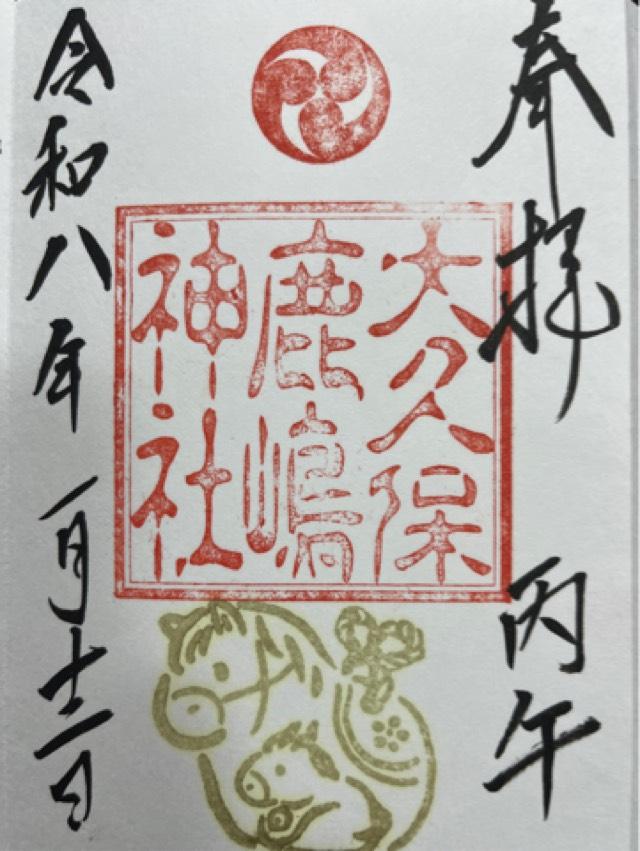 奉拝
丙午
大久保
鹿嶋
神社
令和八年
一月十二日